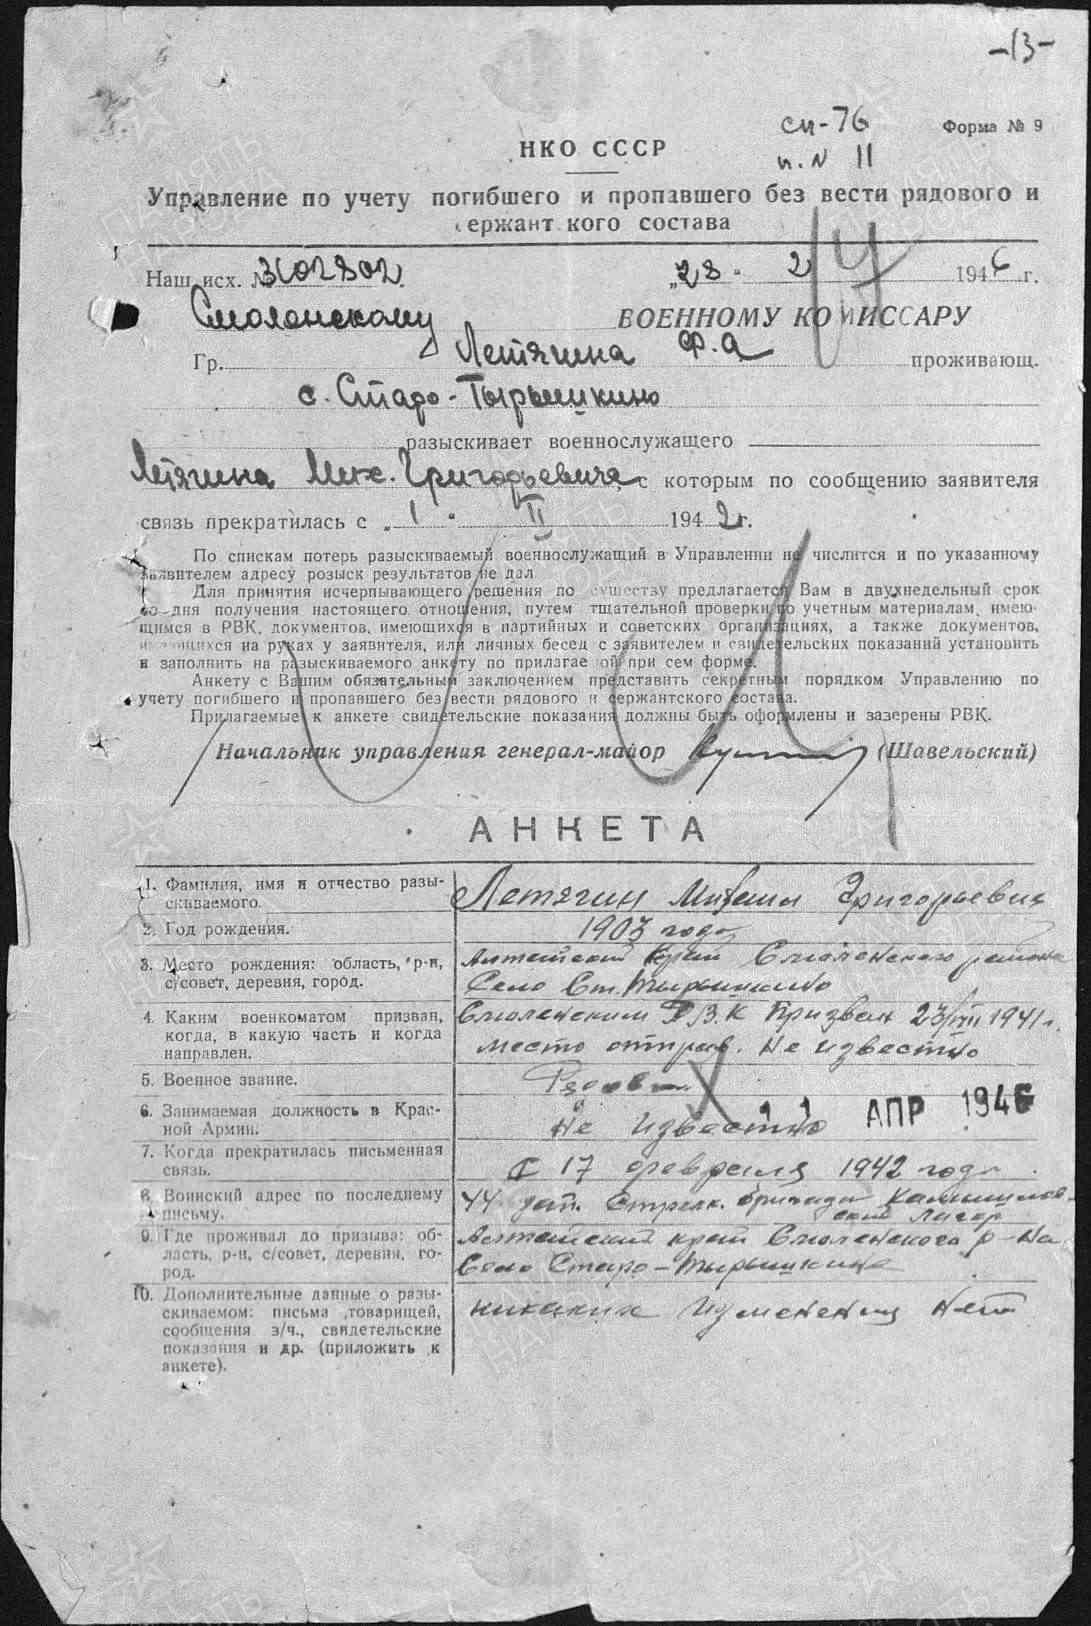 -13-
сп-76
Форма № 9
п. N 11
НКО СССР
Управление по учету погибшего и пропавшего без вести рядового и
сержант кого состава
Наш исх. №
„28" 2 1946 г.
Смоленскому ВОЕННОМУ КОМИССАРУ
Гр. Летягина Ф.А проживающ.
с. Старо-Тырышкино
разыскивает военнослужащего
Летягина Мих. Григорьевича с которым по сообщению заявителя
связь прекратилась с „1" II 1942 г.
По спискам потерь разыскиваемый военнослужащий в Управлении не числится и по указанному
заявителем адресу розыск результатов не дал
Для принятия исчерпывающего решения по существу предлагается Вам в двухнедельный срок
со дня получения настоящего отношения, путем тщательной проверки по учетным материалам, имею-
щимся в РВК, документов, имеющихся в партийных и советских организациях, а также документов,
имеющихся на руках у заявителя, или личных бесед с заявителем и свидетельских показаний установить
и заполнить на разыскиваемого анкету по прилагае ой при сем форме.
Анкету с Вашим обязательным заключением представить секретным порядком Управлению по
учету погибшего и пропавшего без вести рядового и сержантского состава.
Прилагаемые к анкете свидетельские показания должны быть оформлены и заверены РВК.
Начальник управления генерал-майор (Шавельский)
АНКЕТА
1. Фамилия, имя и отчество разы-
скиваемого.
Летягин Михаил Григорьевич
2. Год рождения.
1903 года
3. Место рождения: область, р-н,
с/совет, деревня, город.
Алтайский край Смоленского района
Село Ст. Тырышкино
4. Каким военкоматом призван,
когда, в какую часть и когда
направлен.
Смоленским Р.В.К Призван 23/VIII 1941 г.
место отправ. Не известно
5. Военное звание.
Рядовой
6. Занимаемая должность в Крас-
ной Армии.
Не известно
11 АПР 1946
7. Когда прекратилась письменная
связь.
С 17 февраля 1942 года
8. Воинский адрес по последнему
письму.
44 Стрелк. бригада
лагер
9. Где проживал до призыва: об-
ласть, р-н, с/совет, деревня, го-
род.
Алтайский край Смоленского р-на
Село Старо-Тырышкино
10. Дополнительные данные о разы-
скиваемом: письма товарищей,
сообщения з/ч., свидетельские
показания и др. (приложить к
анкете).
никаких Изменений нет